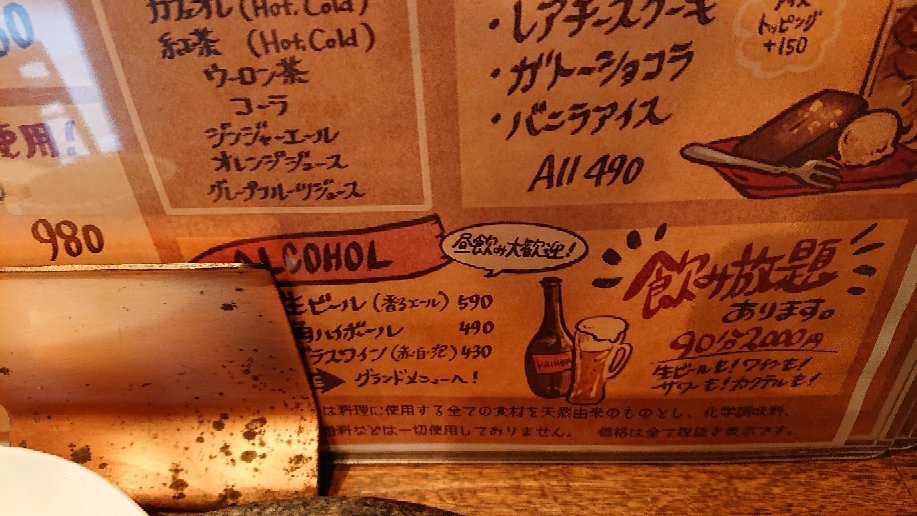 カフェオレ (Hot, Cold)
紅茶 (Hot, Cold)
ウーロン茶
コーラ
ジンジャーエール
オレンジジュース
グレープフルーツジュース
・レアチーズケーキ
・ガトーショコラ
・バニラアイス
All 490
アイス
トッピング
+150
使用!
980
ALCOHOL
昼飲み大歓迎!
生ビール (香るエール) 590
角ハイボール 490
グラスワイン (赤・白・泡) 430
グランドメニューへ!
飲み放題
あります。
90分2,000円
生ビールも!ワインも!
サワーも!カクテルも!
は料理に使用する全ての食材を天然由来のものとし、化学調味料、
料などは一切使用しておりません。 価格は全て税抜き表示です。